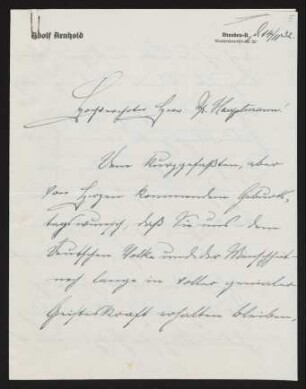 Adolf Arnhold
Dresden-A.
d. 14/11 32.
Hochverehrter Herr Dr. Hauptmann!
Dem kurzgefaßten, aber
von Herzen kommenden Geburts-
tagswunsch, daß Sie uns dem
Deutschen Volke und der Menschheit
noch lange in voller genialer
Geisteskraft erhalten bleiben,